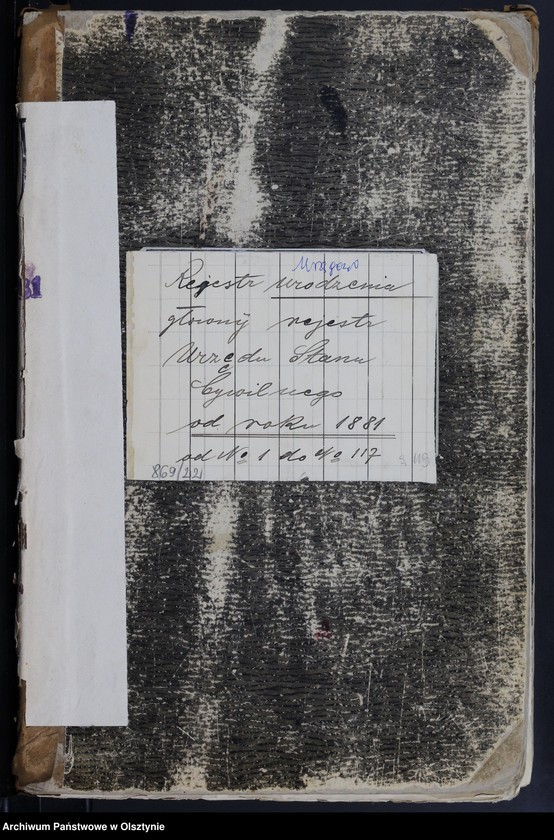 Mrągowo
Rejestr urodzenia
głowny rejestr
Urzędu Stanu
Cywilnego
od roku 1881
od No 1 do No 117
869/22
s. 119
Archiwum Państwowe w Olsztynie